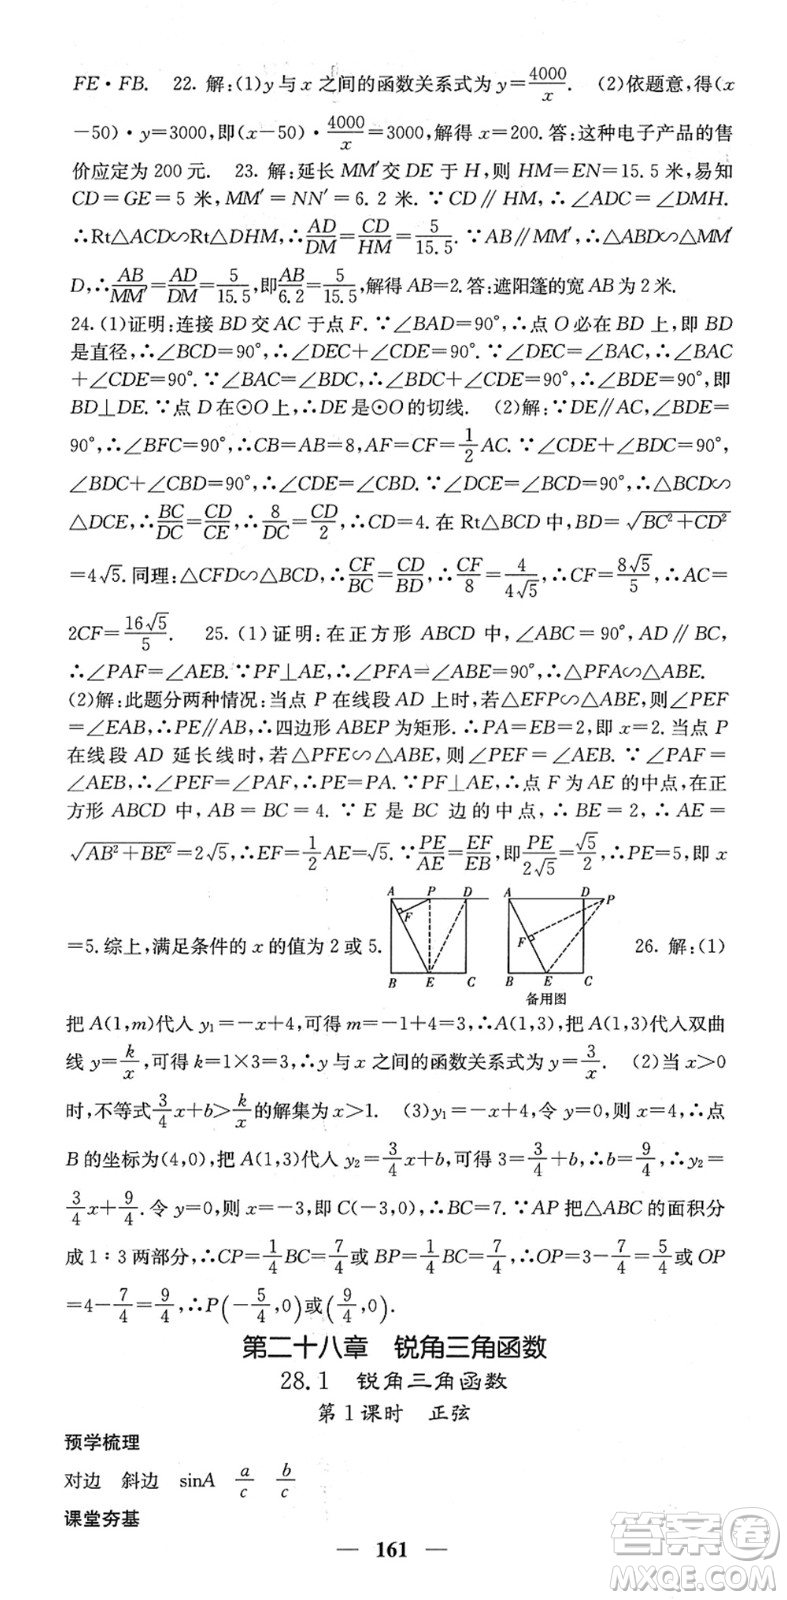 FE·FB. 22. 解:(1)y 与 x 之间的函数关系式为 y=4000/x. (2)依题意,得(x
−50)·y=3000,即(x−50)·4000/x=3000,解得 x=200. 答:这种电子产品的售
价应定为 200 元. 23. 解:延长 MM′交 DE 于 H,则 HM=EN=15.5 米,易知
CD=GE=5 米,MM′=NN′=6.2 米.∵CD∥HM,∴∠ADC=∠DMH.
∴Rt△ACD∽Rt△DHM,∴AD/DM=CD/HM=5/15.5.∵AB∥MM′,∴△ABD∽△MM′
D,∴AB/MM′=AD/DM=5/15.5,即AB/6.2=5/15.5,解得 AB=2.答:遮阳篷的宽 AB为 2 米.
24.(1)证明:连接 BD 交 AC 于点 F.∵∠BAD=90°,∴点 O 必在 BD 上,即 BD
是直径,∴∠BCD=90°,∴∠DEC+∠CDE=90°.∵∠DEC=∠BAC,∴∠BAC
+∠CDE=90°.∵∠BAC=∠BDC,∴∠BDC+∠CDE=90°,∴∠BDE=90°,即
BD⊥DE.∵点 D 在⊙O 上,∴DE 是⊙O 的切线. (2)解:∵DE∥AC,∠BDE=
90°,∴∠BFC=90°,∴CB=AB=8,AF=CF=1/2AC.∵∠CDE+∠BDC=90°,
∠BDC+∠CBD=90°,∴∠CDE=∠CBD.∵∠DCE=∠BCD=90°,∴△BCD∽
△DCE,∴BC/DC=CD/CE,∴8/DC=CD/2,∴CD=4.在 Rt△BCD 中,BD=√(BC²+CD²)
=4√5.同理:△CFD∽△BCD,∴CF/BC=CD/BD,∴CF/8=4/(4√5),∴CF=8√5/5,∴AC=
2CF=16√5/5. 25. (1)证明:在正方形 ABCD 中,∠ABC=90°,AD∥BC,
∴∠PAF=∠AEB.∵PF⊥AE,∴∠PFA=∠ABE=90°,∴△PFA∽△ABE.
(2)解:此题分两种情况:当点 P 在线段 AD 上时,若△EFP∽△ABE,则∠PEF
=∠EAB,∴PE∥AB,∴四边形 ABEP 为矩形.∴PA=EB=2,即 x=2.当点 P
在线段 AD 延长线时,若△PFE∽△ABE,则∠PEF=∠AEB.∵∠PAF=
∠AEB,∴∠PEF=∠PAF,∴PE=PA.∵PF⊥AE,∴点 F 为 AE 的中点,在正
方形 ABCD 中,AB=BC=4.∵E 是 BC 边的中点,∴BE=2,∴AE=
√(AB²+BE²)=2√5,∴EF=1/2AE=√5.∵PE/AE=EF/EB,即PE/(2√5)=√5/2,∴PE=5,即 x
=5.综上,满足条件的 x 的值为 2 或 5.
A P D F B E C
A D P F B E C
备用图
26. 解:(1)
把 A(1,m)代人 y₁=−x+4,可得 m=−1+4=3,∴A(1,3),把 A(1,3)代人双曲
线 y=k/x,可得 k=1×3=3,∴y 与 x 之间的函数关系式为 y=3/x. (2)当 x>0
时,不等式3/4x+b>k/x的解集为 x>1. (3)y₁=−x+4,令 y=0,则 x=4,∴点
B 的坐标为(4,0),把 A(1,3)代人 y₂=3/4x+b,可得 3=3/4+b,∴b=9/4,∴y₂=
3/4x+9/4.令 y=0,则 x=−3,即 C(−3,0),∴BC=7.∵AP 把△ABC 的面积分
成 1∶3 两部分,∴CP=1/4BC=7/4或 BP=1/4BC=7/4,∴OP=3−7/4=5/4或 OP
=4−7/4=9/4,∴P(−5/4,0)或(9/4,0).
第二十八章 锐角三角函数
28.1 锐角三角函数
第 1 课时 正弦
预学梳理
对边 斜边 sinA a/c b/c
课堂夯基
161
作业精灵